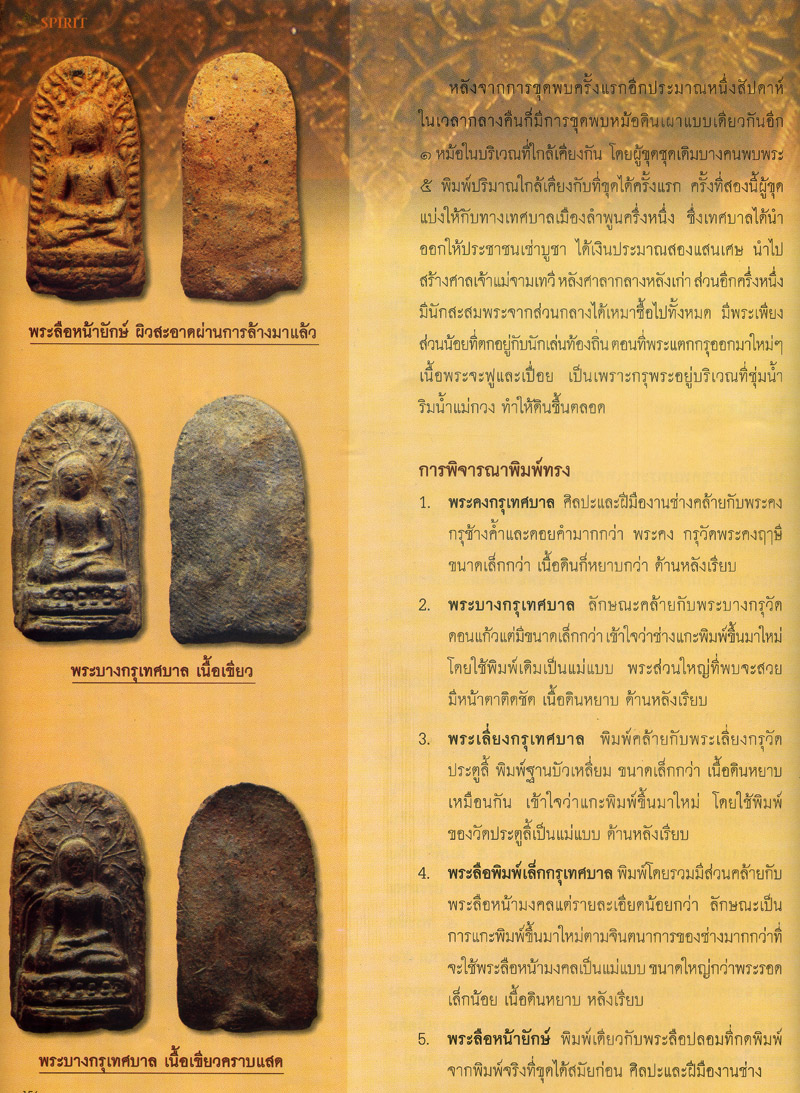 SPIRIT
หลังจากการขุดพบครั้งแรกอีกประมาณหนึ่งสัปดาห์
ในเวลากลางคืนก็มีการขุดพบหม้อดินเผาแบบเดียวกันอีก
๑ หม้อในบริเวณที่ใกล้เคียงกัน โดยผู้ขุดชุดเดิมบางคนพบพระ
๕ พิมพ์ปริมาณใกล้เคียงกับที่ขุดได้ครั้งแรก ครั้งที่สองนี้ผู้ขุด
แบ่งให้กับทางเทศบาลเมืองลำพูนครึ่งหนึ่ง ซึ่งเทศบาลได้นำ
ออกให้ประชาชนเช่าบูชา ได้เงินประมาณสองแสนเศษ นำไป
สร้างศาลเจ้าแม่จามเทวี หลังศาลากลางหลังเก่า ส่วนอีกครึ่งหนึ่ง
มีนักสะสมพระจากส่วนกลางได้เหมาซื้อไปทั้งหมด มีพระเพียง
ส่วนน้อยที่ตกอยู่กับนักเล่นท้องถิ่น ตอนที่พระแตกกรุออกมาใหม่ๆ
เนื้อพระจะฟูและเปื่อย เป็นเพราะกรุพระอยู่บริเวณที่ชุ่มน้ำ
ริมน้ำแม่กวง ทำให้ดินชื้นตลอด
การพิจารณาพิมพ์ทรง
1. พระคงกรุเทศบาล ศิลปะและฝีมืองานช่างคล้ายกับพระคง
กรุช้างค้ำและดอยคำมากกว่า พระคง กรุวัดพระคงฤาษี
ขนาดเล็กกว่า เนื้อดินก็หยาบกว่า ด้านหลังเรียบ
2. พระบางกรุเทศบาล ลักษณะคล้ายกับพระบางกรุวัด
ดอนแก้วแต่มีขนาดเล็กกว่า เข้าใจว่าช่างแกะพิมพ์ขึ้นมาใหม่
โดยใช้พิมพ์เดิมเป็นแม่แบบ พระส่วนใหญ่ที่พบจะสวย
มีหน้าตาติดชัด เนื้อดินหยาบ ด้านหลังเรียบ
3. พระเลี่ยงกรุเทศบาล พิมพ์คล้ายกับพระเลี่ยงกรุวัด
ประตูลี้ พิมพ์ฐานบัวเหลี่ยม ขนาดเล็กกว่า เนื้อดินหยาบ
เหมือนกัน เข้าใจว่าแกะพิมพ์ขึ้นมาใหม่ โดยใช้พิมพ์
ของวัดประตูลี้เป็นแม่แบบ ด้านหลังเรียบ
4. พระลือพิมพ์เล็กกรุเทศบาล พิมพ์โดยรวมมีส่วนคล้ายกับ
พระลือหน้ามงคลแต่รายละเอียดน้อยกว่า ลักษณะเป็น
การแกะพิมพ์ขึ้นมาใหม่ตามจินตนาการของช่างมากกว่าที่
จะใช้พระลือหน้ามงคลเป็นแม่แบบ ขนาดใหญ่กว่าพระรอด
เล็กน้อย เนื้อดินหยาบ หลังเรียบ
5. พระลือหน้ายักษ์ พิมพ์เดียวกับพระลือปลอมที่กดพิมพ์
จากพิมพ์จริงที่ขุดได้สมัยก่อน ศิลปะและฝีมืองานช่าง
พระลือหน้ายักษ์ ผิวสะอาดผ่านการล้างมาแล้ว
พระบางกรุเทศบาล เนื้อเขียว
พระบางกรุเทศบาล เนื้อเขียวคราบแสด